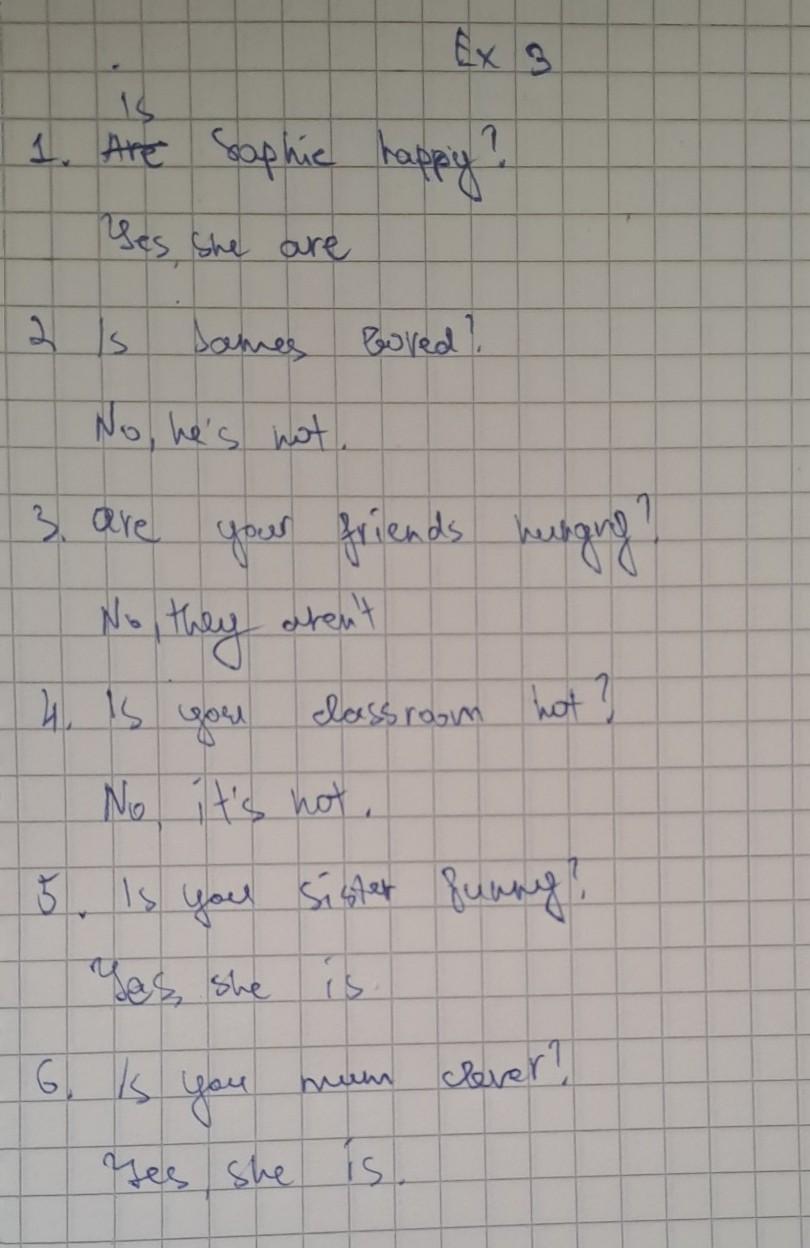 Ex 3
is
1. Are Sophie happy?
Yes, she are
2 Is James bored?
No, he's not.
3. are your friends hungry?
No, they aren't
4. Is you classroom hot?
No, it's not.
5. Is you sister funny?
Yes, she is.
6. Is you mum clever?
Yes, she is.